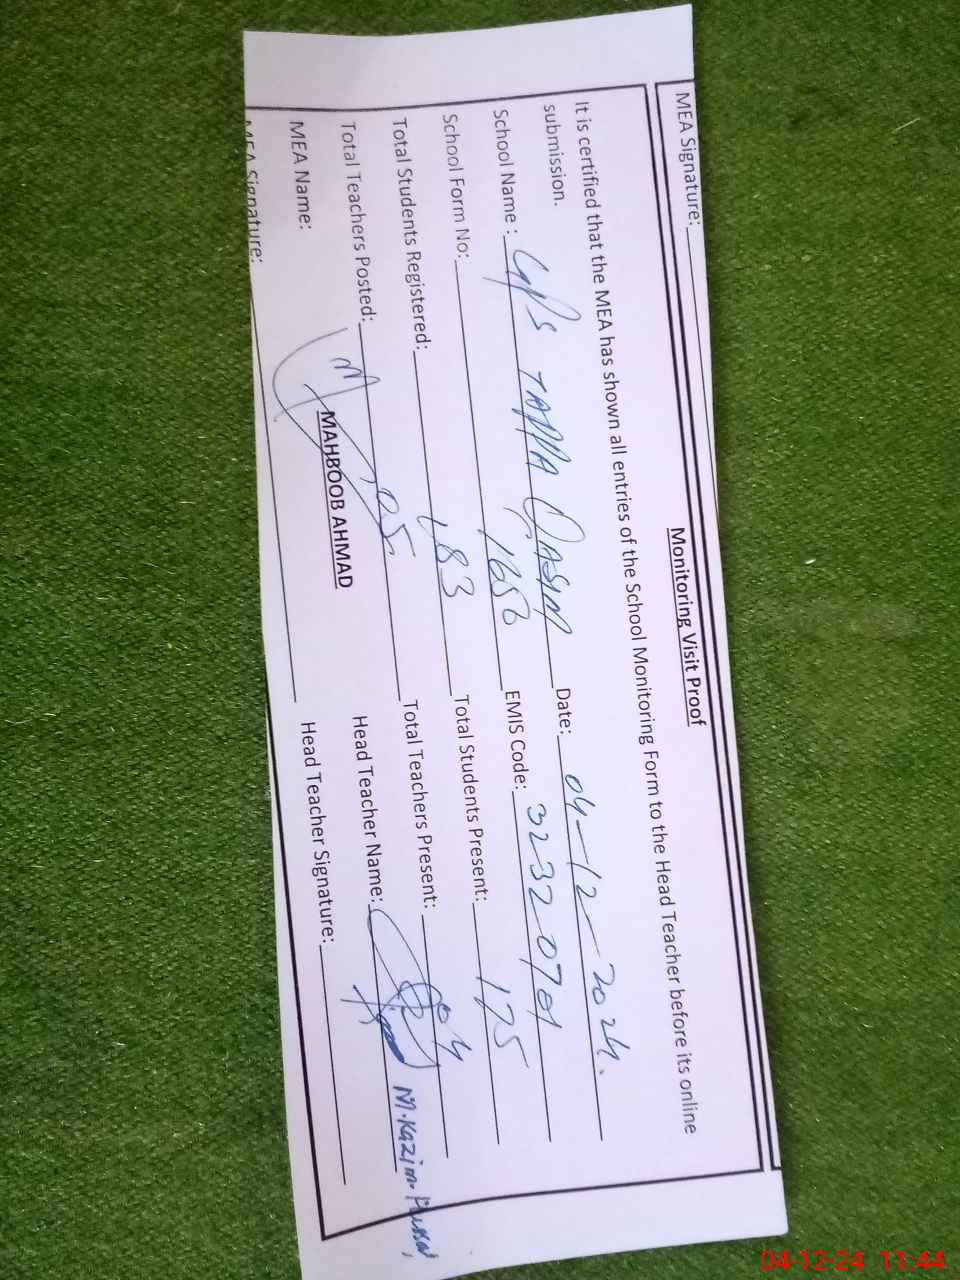 MEA Signature:
Monitoring Visit Proof
It is certified that the MEA has shown all entries of the School Monitoring Form to the Head Teacher before its online
submission.
School Name : GPS TAPPA QASIM Date: 04-12-2024.
School Form No: 1658 EMIS Code: 32320701
Total Students Registered: 183 Total Students Present: 175
Total Teachers Posted: 05 Total Teachers Present: 04
MEA Name: MAHBOOB AHMAD Head Teacher Name: M. Kazim
MEA Signature: Head Teacher Signature:
04-12-24 11:44